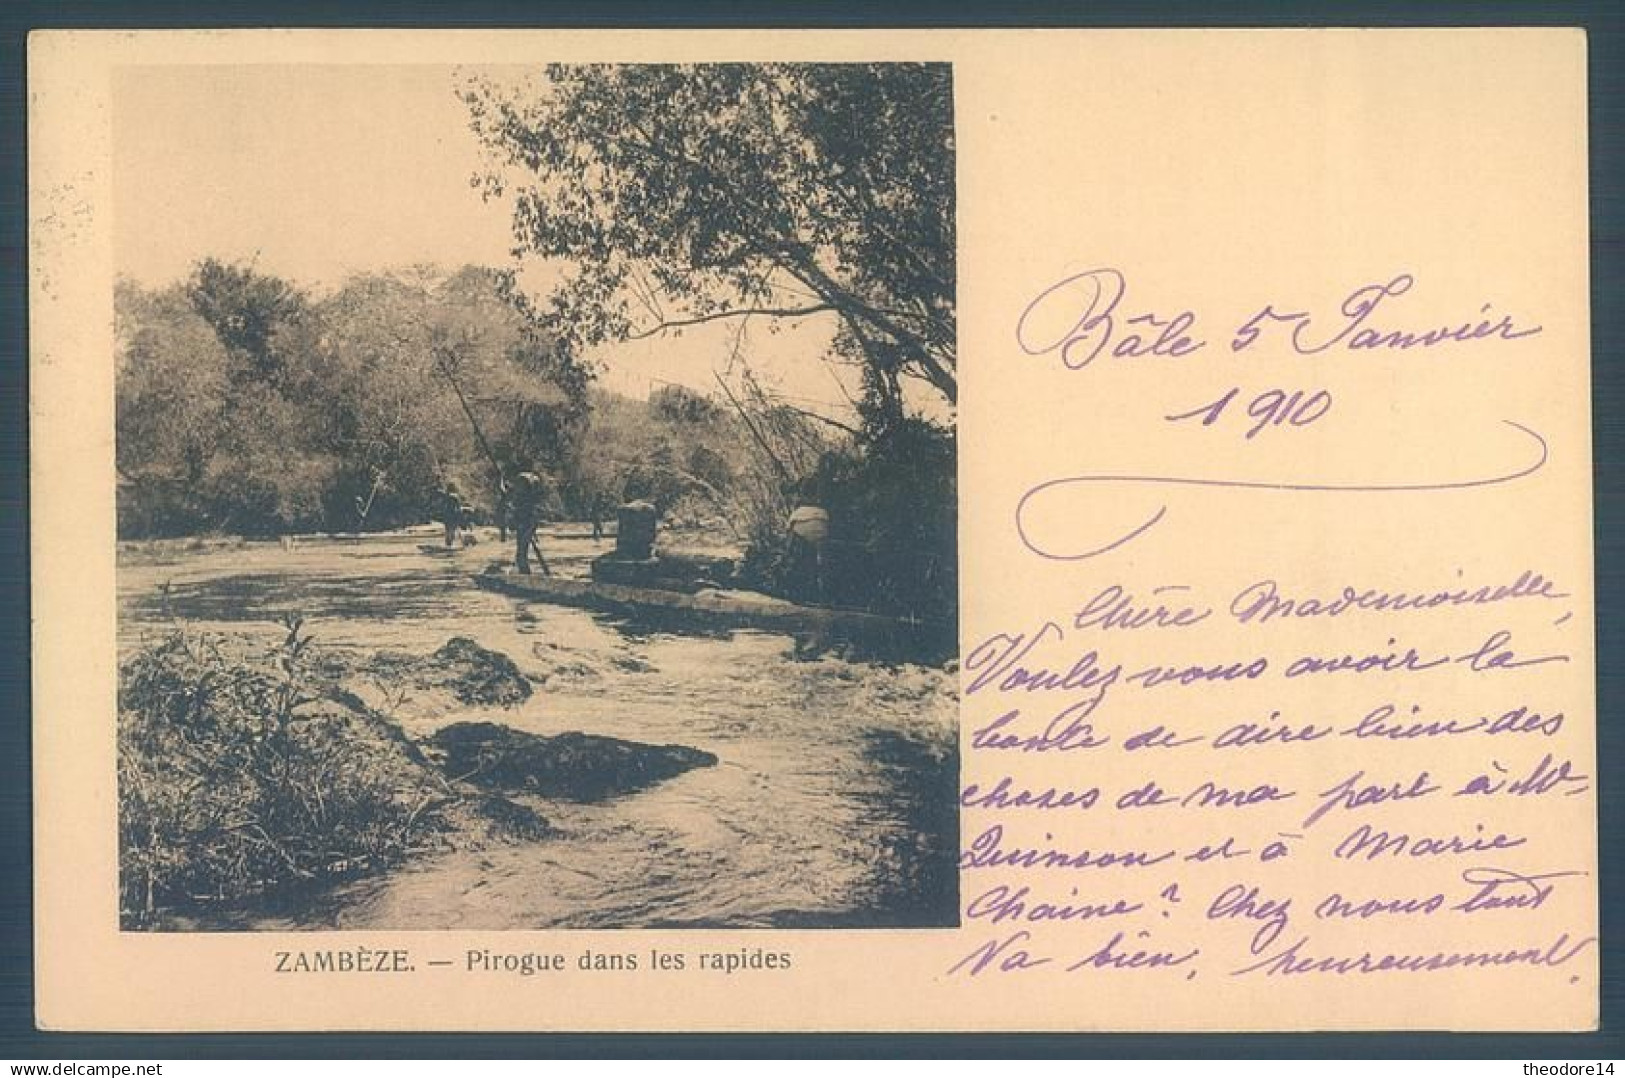 Bâle 5 Janvier
1910
Chère Mademoiselle,
Voulez vous avoir la
bonté de dire bien des
choses de ma part à M
Quinson et à Marie
Chaine? Chez nous tout
va bien, heureusement.
ZAMBÈZE. — Pirogue dans les rapides
www.delcampe.net
theodore14